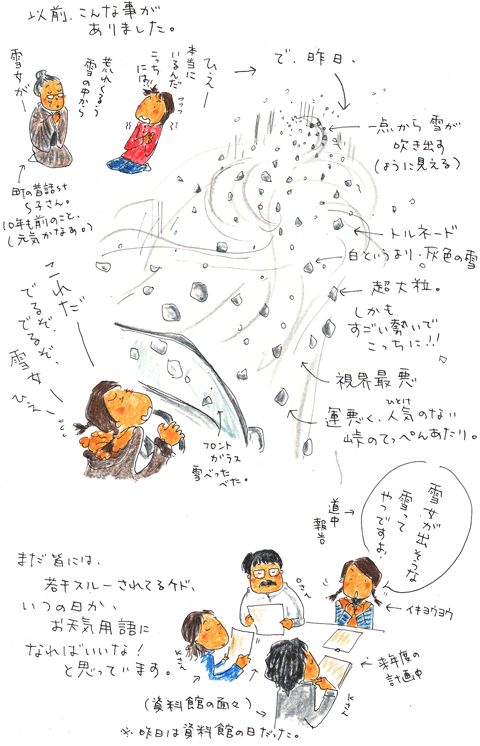 以前、こんな事が
ありました。
雪女が―
荒れくるう
雪の中から
ひえ―
本当に
いるんだ
こっちには!!
町の昔話st
S子さん。
10年も前のこと。
(元気かなぁ。)
で、昨日、
一点から雪が
吹き出す
(ように見える)
トルネード
白というより、灰色の雪
超大粒。
しかも
すごい勢いで
こっちに!!
視界最悪
運悪く、人気のない
ひとけ
峠のてっぺんあたり。
これだ―
でるぞ、
でるぞ、
雪女
ひえ―
フロント
ガラス
雪べった
べた。
雪女が出そうな
雪って
やつですよ、
道中
報告
イキヨウヨウ
まだ皆には、
若干スルーされてるケド、
いつの日か、
お天気用語に
なればいいな!
と思っています。
Oさん
Kさん
Kさん
来年度の
計画中
(資料館の面々)
※昨日は資料館の日だった。